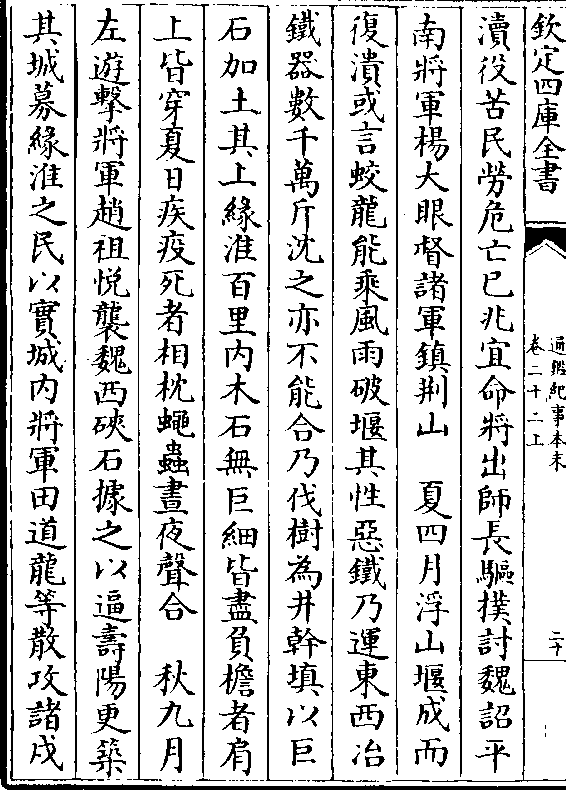 欽定四庫全書
通鑑紀事本末
卷二十二上
二十
瀆役苦民勞危亡已兆宜命將出師長驅撲討魏詔平
南將軍楊大眼督諸軍鎮荆山　夏四月浮山堰成而
復潰或言蛟龍能乘風雨破堰其性惡鐵乃運東西冶
鐵器數千萬斤沈之亦不能合乃伐樹為井幹填以巨
石加土其上緣淮百里内木石無巨細皆盡負檐者肩
上皆穿夏日疾疫死者相枕蠅蟲晝夜聲合　秋九月
左遊擊將軍趙祖悦襲魏西硤石據之以逼壽陽更築
其城募緣淮之民以實城内將軍田道龍等散攻諸戍